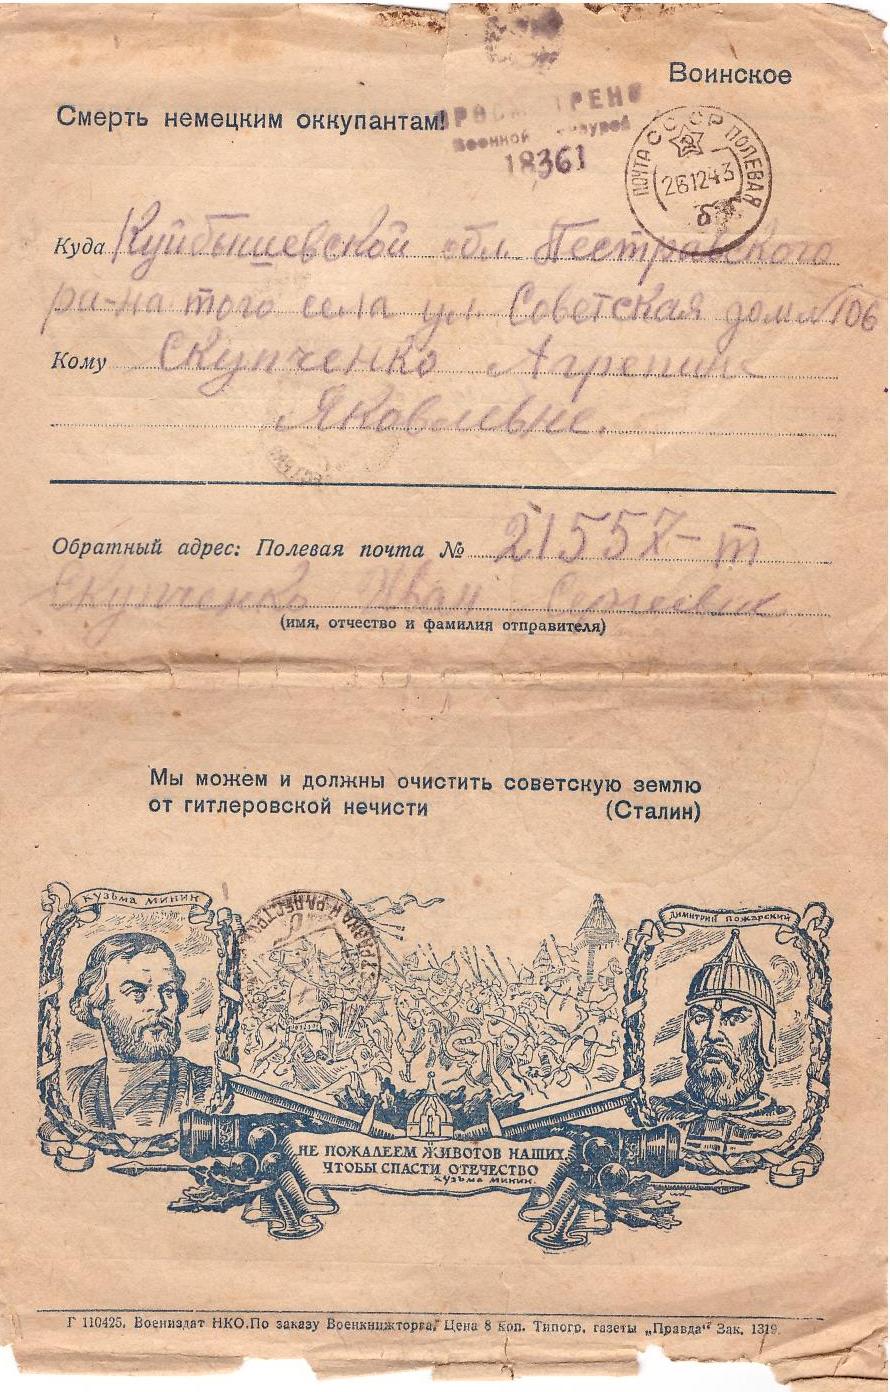 Воинское
Смерть немецким оккупантам!
ПРОСМОТРЕНО
Военной Цензурой
18361
ПОЧТА СССР ПОЛЕВАЯ
26 12 43
б
Куда Куйбышевской обл Пестравского
ра-на того села ул Советская дом №106
Кому Скупченко Агрепине
Яковлевне.
Обратный адрес: Полевая почта № 21557-т
Скупченко Иван
(имя, отчество и фамилия отправителя)
Мы можем и должны очистить советскую землю
от гитлеровской нечисти (Сталин)
КУЗЬМА МИНИН
ДИМИТРИЙ ПОЖАРСКИЙ
НЕ ПОЖАЛЕЕМ ЖИВОТОВ НАШИХ,
ЧТОБЫ СПАСТИ ОТЕЧЕСТВО
КУЗЬМА МИНИН.
Г 110425. Воениздат НКО. По заказу Военкнижторга. Цена 8 коп. Типогр. газеты „Правда" Зак. 1319.